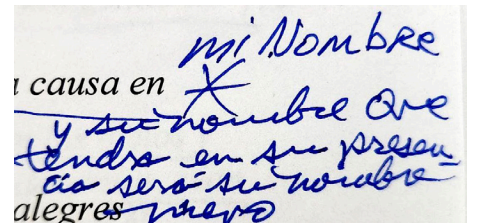 mi Nombre
a causa en X
y su nombre que
tendra en su presen
cia será su nombre
alegres nuevo